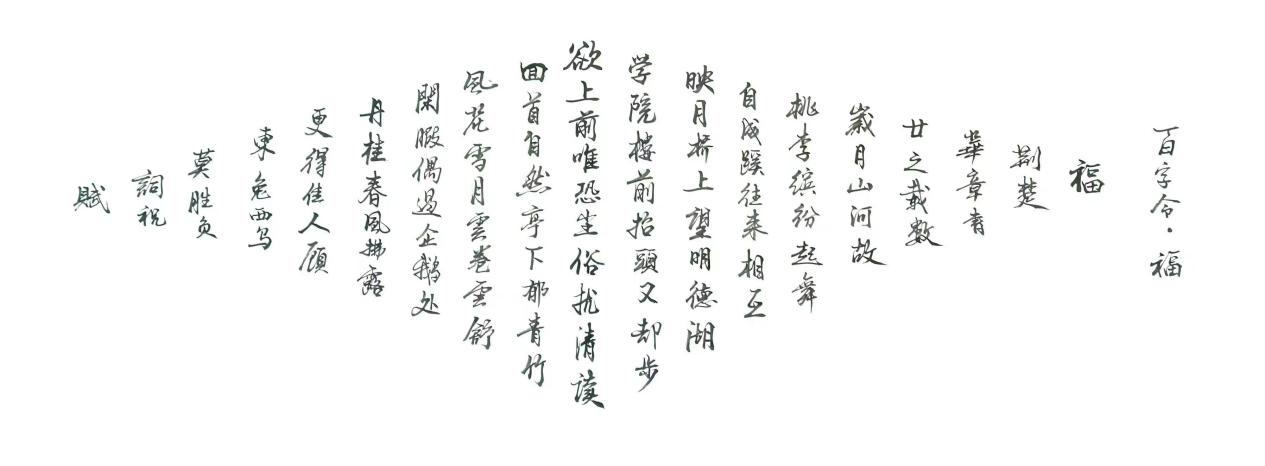 百字令·福
福
荆楚
華章青
廿之載数
歲月山河故
桃李缤纷起舞
自成蹊往来相互
映月桥上望明德湖
学院楼前抬頭又却步
欲上前唯恐尘俗扰清谟
囬首自然亭下郁青竹
風花雪月雲卷雲舒
閑暇偶過企鵝处
丹桂春風拂露
更得佳人顾
東兔西乌
莫胜负
詞祝
賦